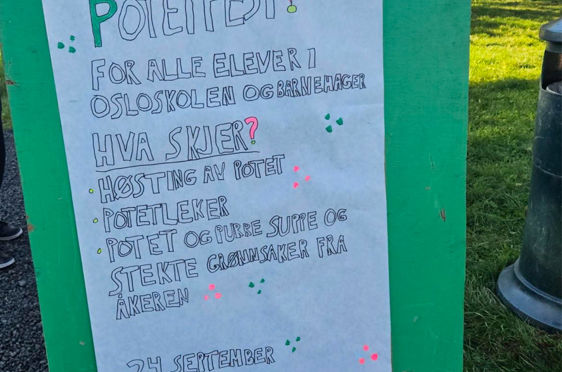 POTETFEST!
FOR ALLE ELEVER I
OSLOSKOLEN OG BARNEHAGER
HVA SKJER?
• HØSTING AV POTET
• POTETLEKER
• POTET OG PURRE SUPPE OG
STEKTE GRØNNSAKER FRA
ÅKEREN
24 SEPTEMBER